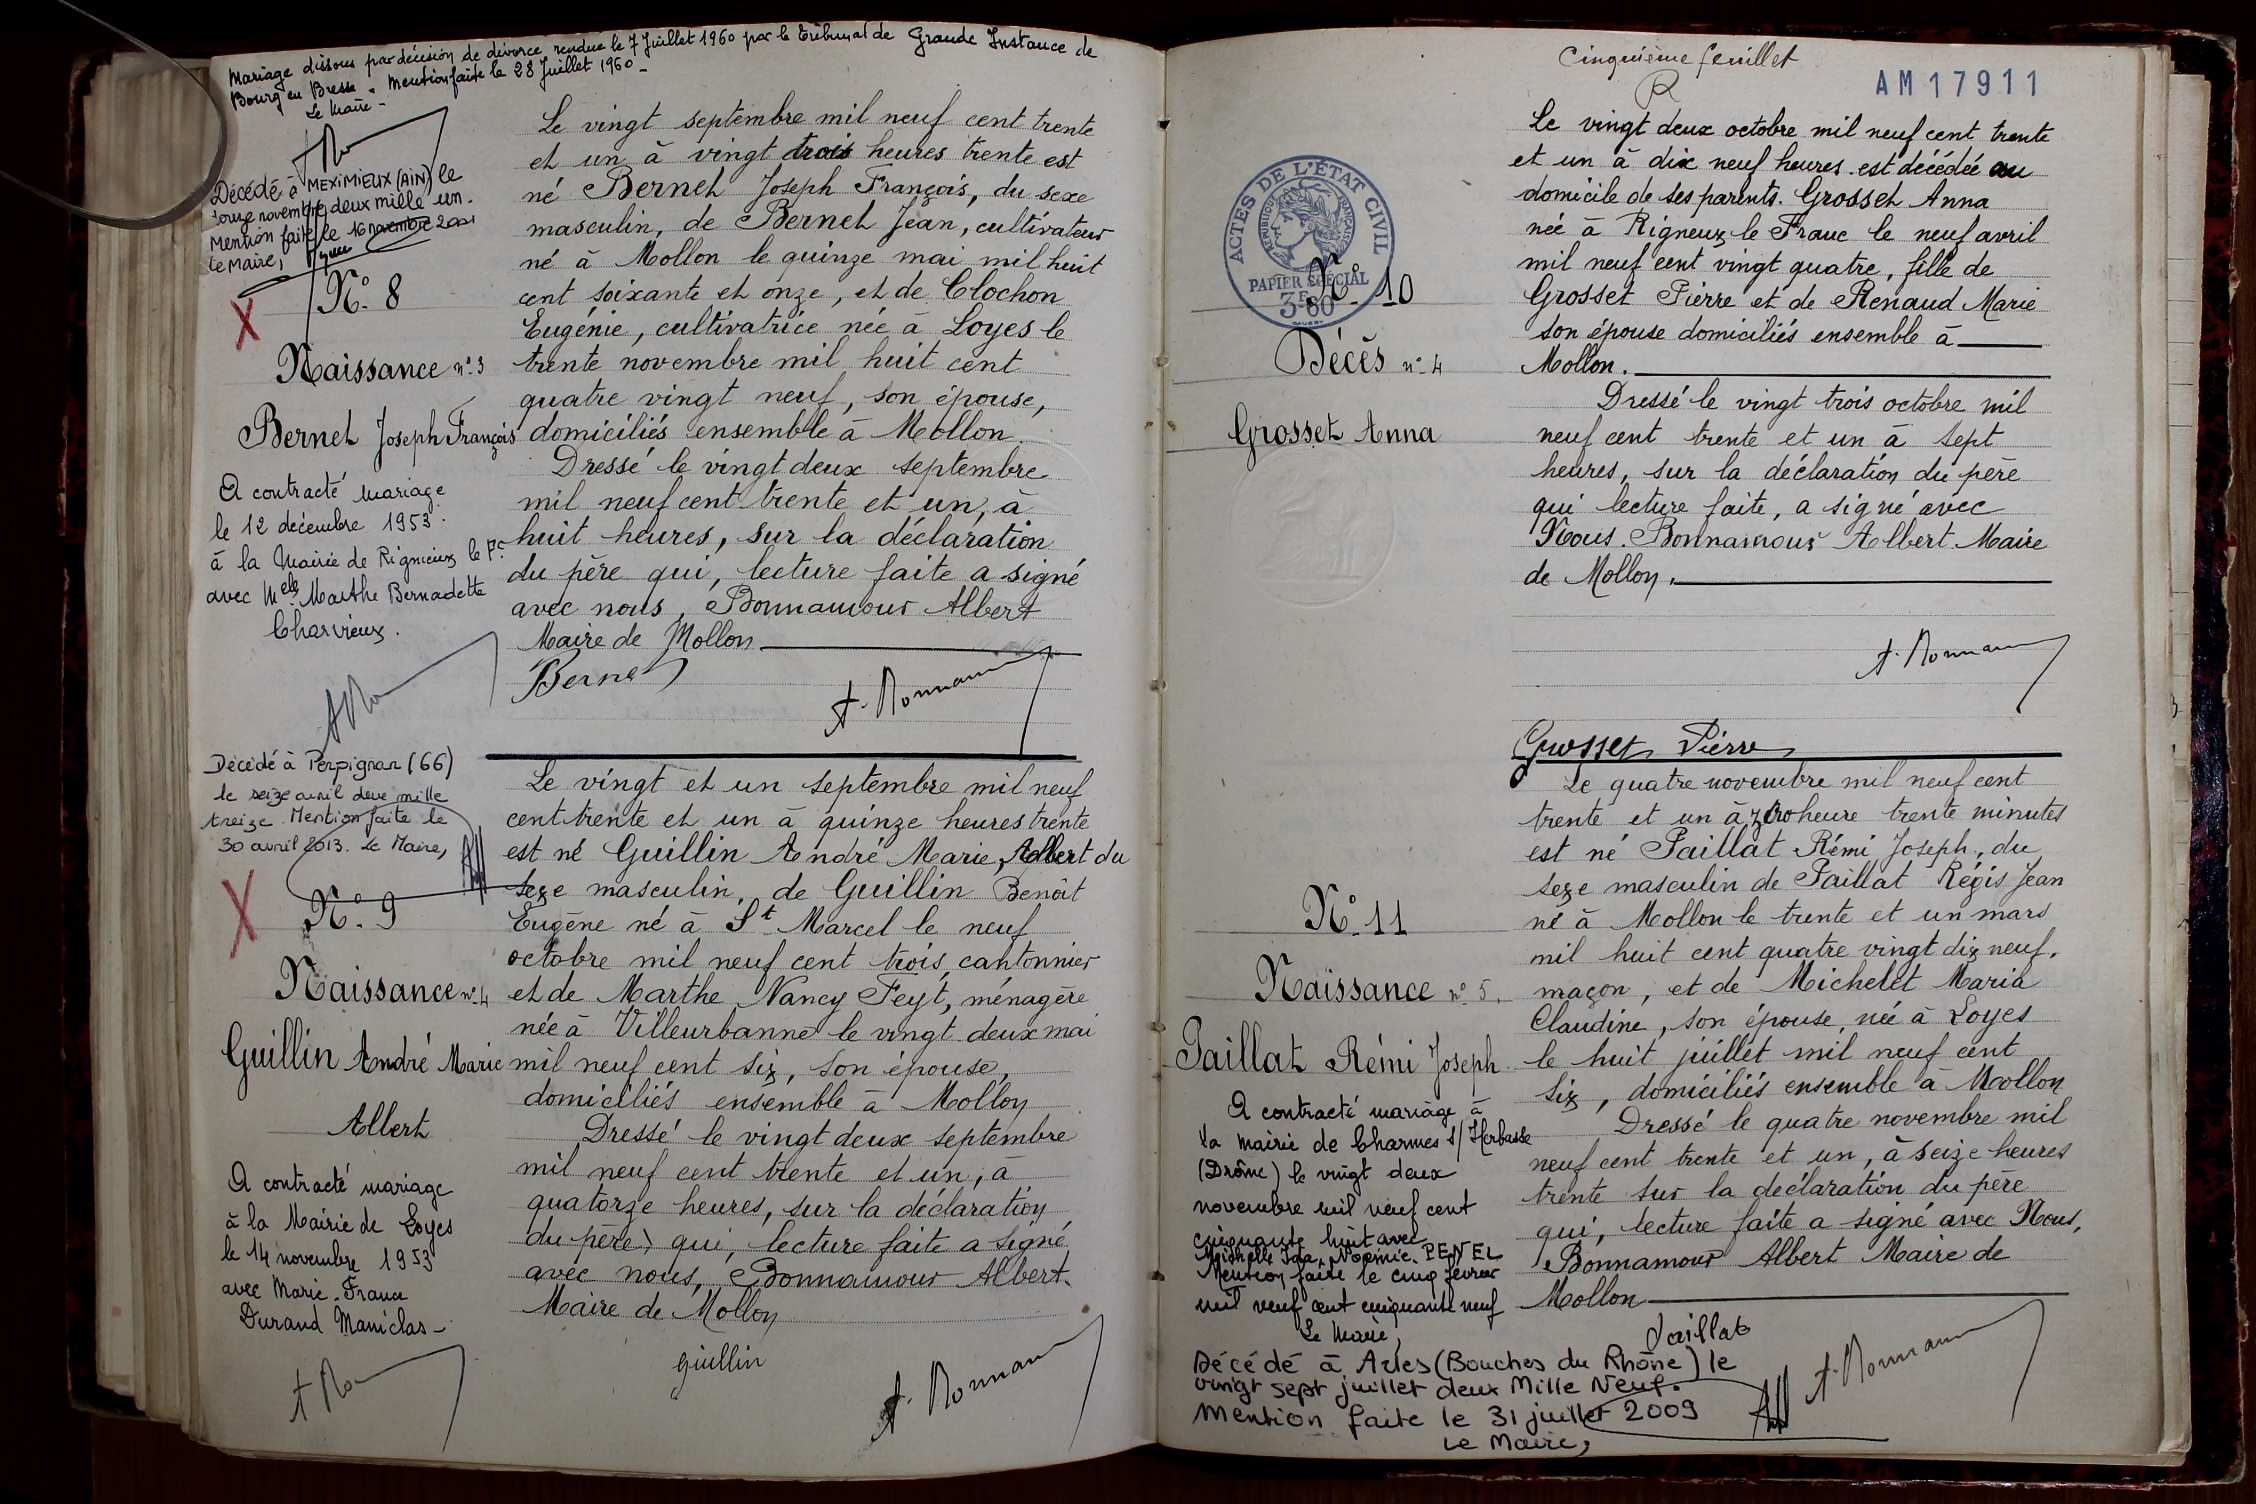 Mariage dissous par décision de divorce rendue le 7 Juillet 1960 par le Tribunal de Grande Instance de
Bourg en Bresse. Mention faite le 28 Juillet 1960 -
Le Maire -
Décédé à MEXIMIEUX (AIN) le
onze novembre deux mille un.
Mention faite le 16 novembre 2001
Le Maire,
N° 8
Naissance n° 3
Bernet Joseph François
A contracté mariage
le 12 décembre 1953
à la Mairie de Rignieux le Fc
avec Melle Marthe Bernadette
Charvieux.
Le vingt septembre mil neuf cent trente
et un à vingt trois heures trente est
né Bernet Joseph François, du sexe
masculin, de Bernet Jean, cultivateur
né à Mollon le quinze mai mil huit
cent soixante et onze, et de Clochon
Eugénie, cultivatrice née à Loyes le
trente novembre mil huit cent
quatre vingt neuf, son épouse,
domiciliés ensemble à Mollon.
Dressé le vingt deux septembre
mil neuf cent trente et un, à
huit heures, sur la déclaration
du père qui, lecture faite a signé
avec nous, Bonnamour Albert
Maire de Mollon
Bernet
A. Bonnam
Décédé à Perpignan (66)
le seize avril deux mille
treize. Mention faite le
30 avril 2013. Le Maire,
N° 9
Naissance n° 4
Guillin André Marie
Albert
A contracté mariage
à la Mairie de Loyes
le 14 novembre 1953
avec Marie-France
Durand Maniclas -
Le vingt et un septembre mil neuf
cent trente et un à quinze heures trente
est né Guillin André Marie, Albert du
sexe masculin, de Guillin Benoît
Eugène né à St Marcel le neuf
octobre mil neuf cent trois, cantonnier
et de Marthe Nancy Feyt, ménagère
née à Villeurbanne le vingt deux mai
mil neuf cent six, son épouse,
domiciliés ensemble à Mollon
Dressé le vingt deux septembre
mil neuf cent trente et un, à
quatorze heures, sur la déclaration
du père qui, lecture faite a signé
avec nous, Bonnamour Albert.
Maire de Mollon
Guillin
A. Bonnam
Cinquième feuillet
AM17911
ACTES DE L'ÉTAT CIVIL
RÉPUBLIQUE FRANÇAISE
PAPIER SPÉCIAL
3F60
N° 10
Décès n° 4
Grosset Anna
Le vingt deux octobre mil neuf cent trente
et un à dix neuf heures est décédée au
domicile de ses parents. Grosset Anna
née à Rigneux le Franc le neuf avril
mil neuf cent vingt quatre, fille de
Grosset Pierre et de Renaud Marie
son épouse domiciliés ensemble à
Mollon.
Dressé le vingt trois octobre mil
neuf cent trente et un à sept
heures, sur la déclaration du père
qui lecture faite, a signé avec
Nous. Bonnamour Albert. Maire
de Mollon.
A. Bonnam
Grosset Pierre
N° 11
Naissance n° 5.
Paillat Rémi Joseph
A contracté mariage à
la mairie de Charmes s/ Herbasse
(Drôme) le vingt deux
novembre mil neuf cent
cinquante huit avec
Michelle Ida Noémie PENEL
Mention faite le cinq février
mil neuf cent cinquante neuf
Le Maire,
Décédé à Arles (Bouches du Rhône) le
vingt sept juillet deux Mille Neuf.
Mention faite le 31 juillet 2009
Le Maire,
Le quatre novembre mil neuf cent
trente et un à zéro heure trente minutes
est né Paillat Rémi Joseph, du
sexe masculin de Paillat Régis Jean
né à Mollon le trente et un mars
mil huit cent quatre vingt dix neuf.
maçon, et de Michelet Maria
Claudine, son épouse, née à Loyes
le huit juillet mil neuf cent
six, domiciliés ensemble à Mollon
Dressé le quatre novembre mil
neuf cent trente et un, à seize heures
trente sur la déclaration du père
qui, lecture faite a signé avec Nous,
Bonnamour Albert Maire de
Mollon
Paillat
A. Bonnam